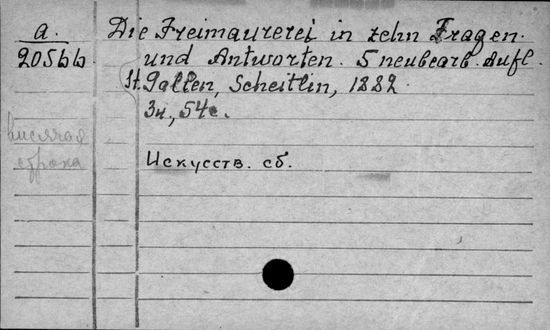 a.
2056b
Die Freimaurerei in zehn Fragen
und Antworten. 5 neubearb. Aufl.
St. Gallen, Scheitlin, 1882
3н., 54с.
висячая
строка
Искусств. сб.